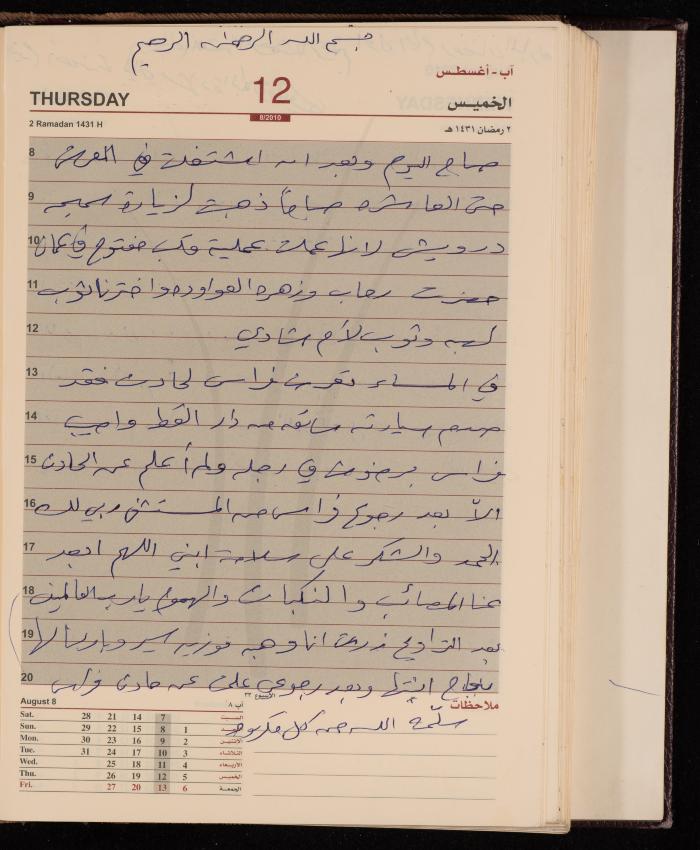 بسم الله الرحمن الرحيم
آب - أغسطس
THURSDAY 12 الخميس
8/2010
2 Ramadan 1431 H ٢ رمضان ١٤٣١ هـ
8 صباح اليوم وبعد ان اشتغلت في
9 حتى العاشره صباحاً ذهبت لزيارة سميحه
10 درويش لانها عملت عملية قلب مفتوح في عمان
11 حضرت رحاب وزهره واخترنا ثوب
12 لهبه وثوب لأم شادي
13 في المساء تعرض فراس لحادث فقد
14 صدم سيارته سائقه من دار القط واصيب
15 فراس برضوض في رجله ولم أعلم عن الحادث
16 الاّ بعد رجوع فراس من المستشفى ربي لك
17 الحمد والشكر على سلامة ابني اللهم ابعد
18 عنا المصائب والنكبات والهموم يارب العالمين
19 بعد التراويح زرت انا وهبه فوزيه وباركنا لها
20 بنجاح ابنتها وبعد رجوعي علمت عن حادث فراس
سلّمه الله من كل مكروه
ملاحظات
August 8 آب ٨
Sat. 28 21 14 7 السبت
Sun. 29 22 15 8 1 الأحد
Mon. 30 23 16 9 2 الاثنين
Tue. 31 24 17 10 3 الثلاثاء
Wed. 25 18 11 4 الاربعاء
Thu. 26 19 12 5 الخميس
Fri. 27 20 13 6 الجمعة